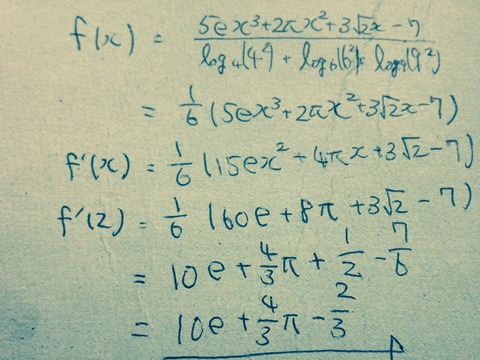 f(x) = \frac{5ex³+2πx²+3√2x-7}{log₄(4²)+log₆(6²)+log₉(9²)}
= \frac{1}{6}(5ex³+2πx²+3√2x-7)
f'(x) = \frac{1}{6}(15ex²+4πx+3√2-7)
f'(2) = \frac{1}{6}(60e+8π+3√2-7)
= 10e+\frac{4}{3}π+\frac{1}{2}-\frac{7}{6}
= 10e+\frac{4}{3}π-\frac{2}{3}